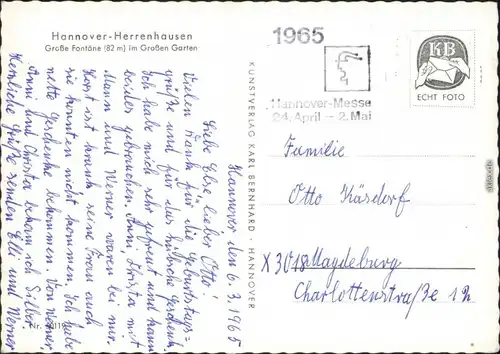 Hannover-Herrenhausen
Große Fontäne (82 m) im Großen Garten
Hannover den 6.3.1965
Liebe Else, lieber Otto!
Vielen Dank für die Geburtstags=
grüße und für das hübsche Geschenk.
Ich habe mich sehr gefreut und kann
beides gebrauchen. Anni, Christa mit
Mann und Werner waren bei mir.
Horst ist krank seine Frau auch
sie konnten nicht kommen. Ich habe
nette Geschenke bekommen. Von Werner
Anni und Christa bekam ich Silber
Herzliche Grüße senden Elli und Werner
Nr.
KUNSTVERLAG KARL BERNHARD · HANNOVER
1965
Hannover-Messe
24. April – 2. Mai
KB
ECHT FOTO
Familie
Otto Käsdorf
X 3018 Magdeburg
Charlottenstra/3e 12